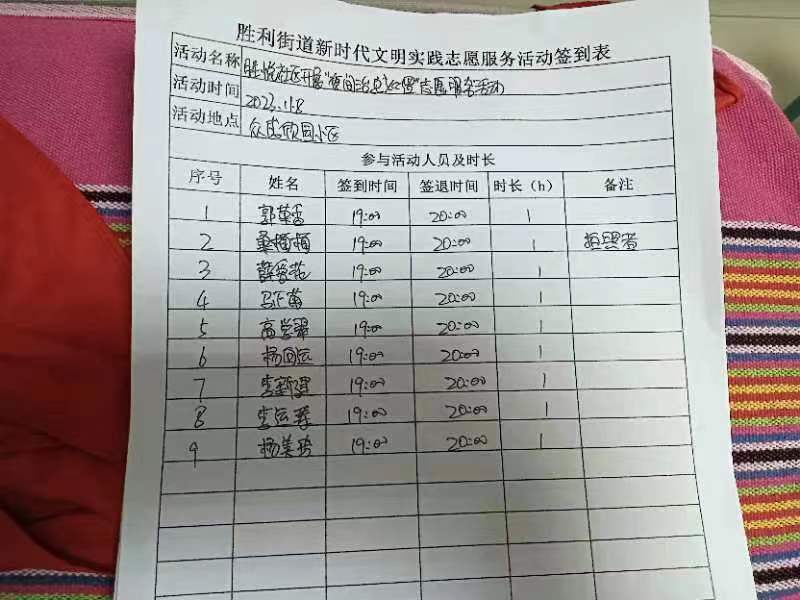 胜利街道新时代文明实践志愿服务活动签到表
活动名称 胜悦社区开展"夜间治安巡逻"志愿服务活动
活动时间 2023.1.8
活动地点 众成欣园小区
参与活动人员及时长
序号 姓名 签到时间 签退时间 时长（h） 备注
1 郭荣香 19:00 20:00 1
2 桑梅梅 19:00 20:00 1
3 薛爱花 19:00 20:00 1
4 马正苗 19:00 20:00 1
5 高学翠 19:00 20:00 1
6 杨回远 19:00 20:00 1
7 李新建 19:00 20:00 1
8 李运 19:00 20:00 1
9 杨美玲 19:00 20:00 1